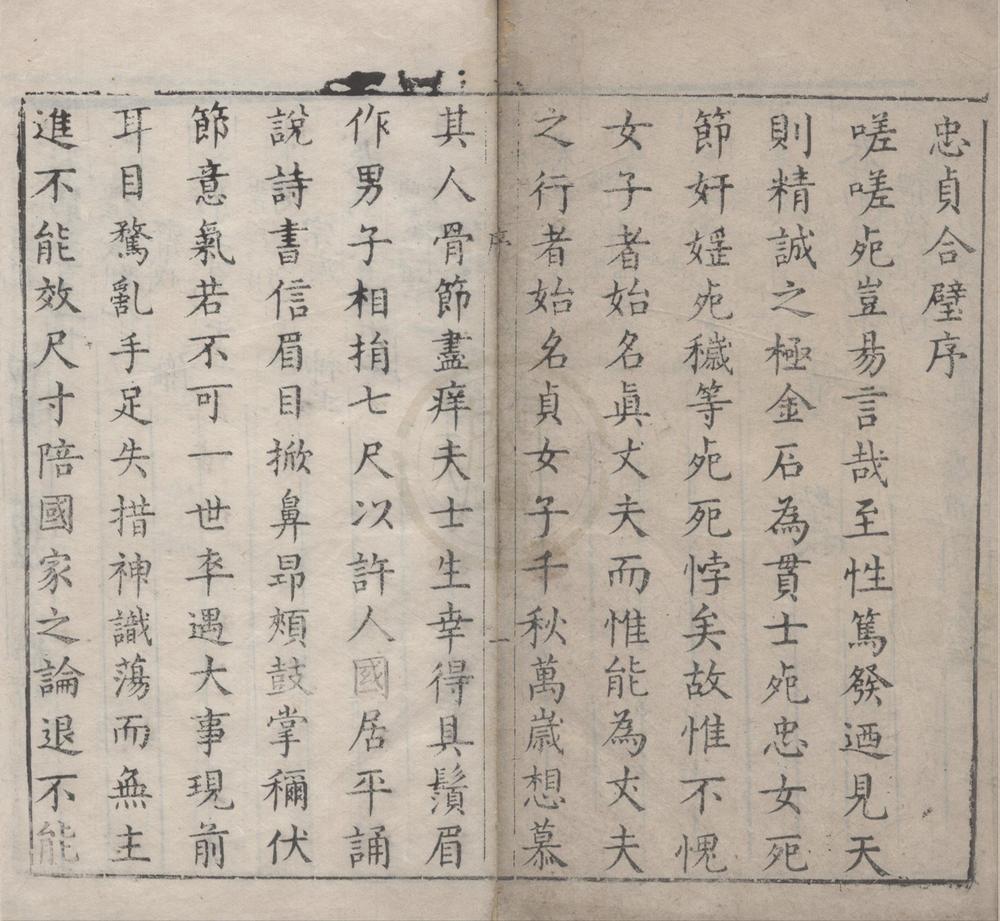 忠貞合璧序
嗟嗟夗豈易言哉至性篤發迺見天
則精誠之極金石為貫士夗忠女死
節奸婬夗穢等夗死悖矣故惟不愧
女子者始名眞丈夫而惟能為丈夫
之行者始名貞女子千秋萬嵗想慕
序
一
其人骨節盡痒夫士生幸得具鬚眉
作男子相捐七尺以許人國居平誦
說詩書信眉目掀鼻昻頰鼓掌穪伏
節意氣若不可一世卒遇大事現前
耳目騖亂手足失措神識蕩而無主
進不能效尺寸陪國家之論退不能